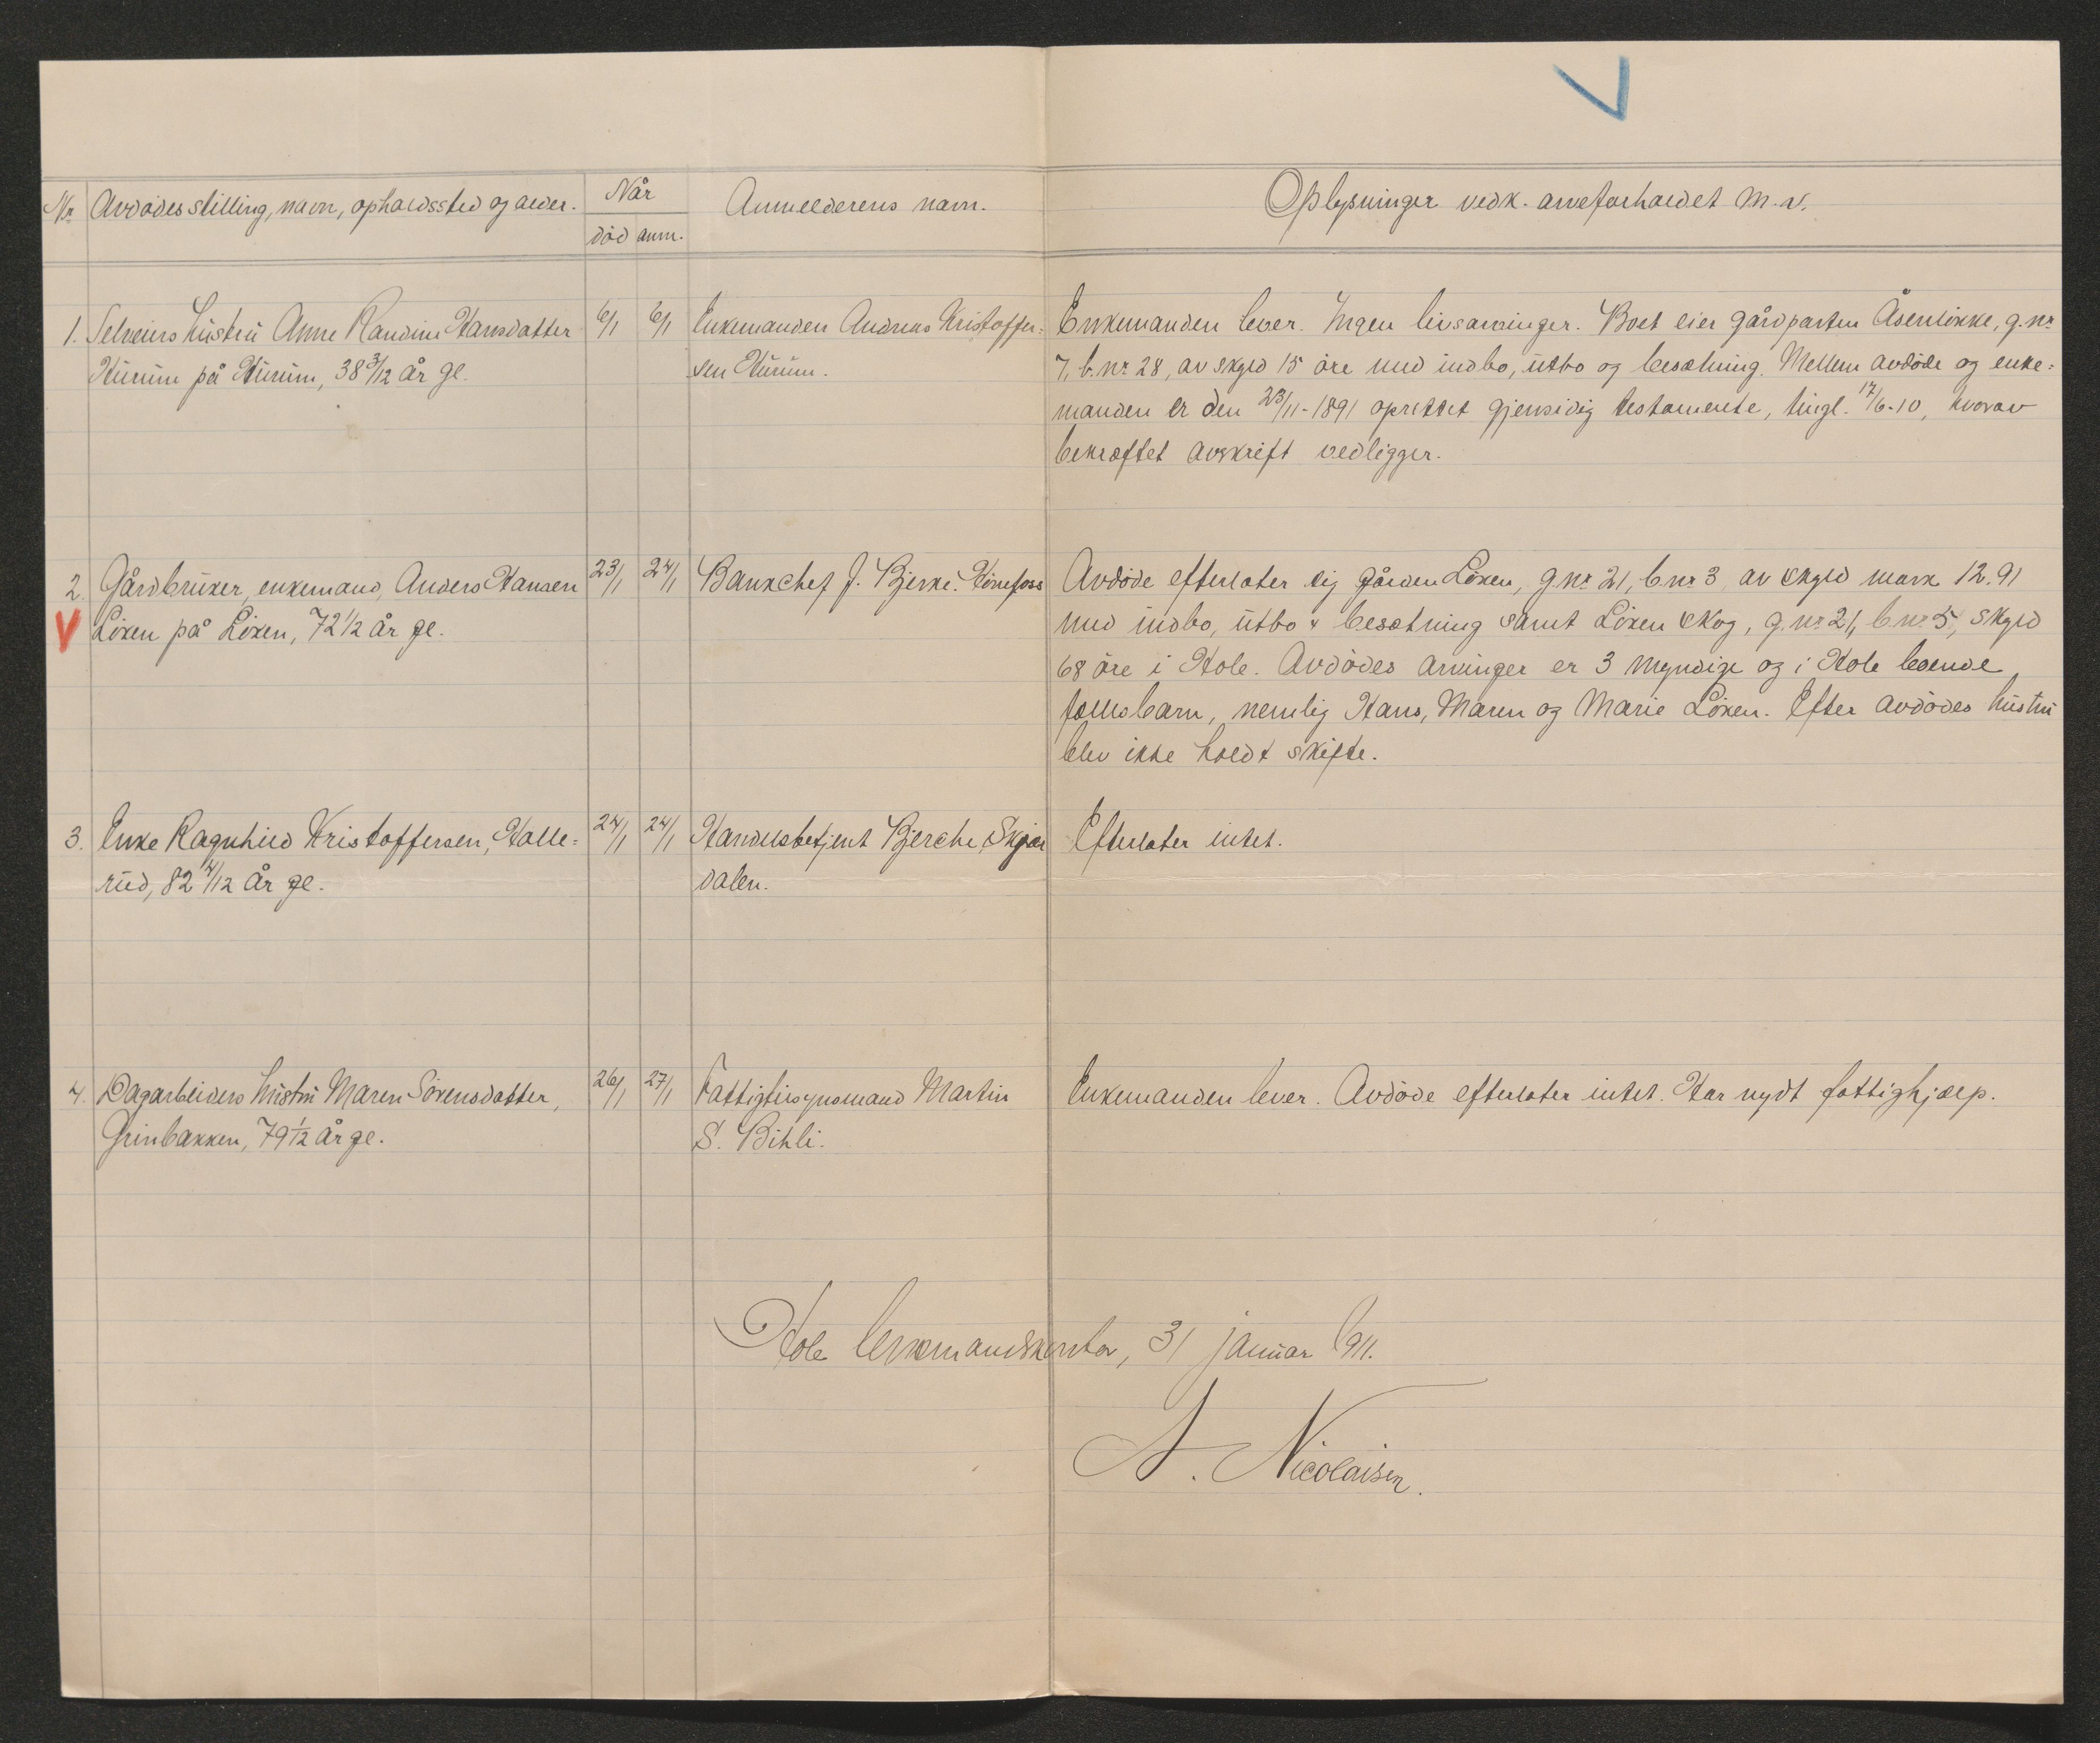 Nr. Avdødes stilling, navn, opholdssted og alder. Når død anm. Anmelderens navn. Oplysninger vedk. arveforholdet m.v.
1. Selveiers hustru Anne Randine Hansdatter
Hurum på Hurum, 38 3/12 år gl.
6/1 6/1
Enkemanden Andreas Kristoffer-
sen Hurum.
Enkemanden lever. Ingen livsarvinger. Boet eier gårdparten Åsenløkke, g.nr
7, b.nr 28, av skyld 15 øre med indbo, utbo og besætning. Mellem avdøde og enke-
manden er den 23/11-1891 oprettet gjensidig testamente, tingl. 17/6-10, hvorav
bekræftet avskrift vedligger.
2. Gårdbruker, enkemand, Anders Hansen
Løken på Løken, 72 1/2 år gl.
23/1 24/1
Bankchef J. Bjerke. Hönefoss
Avdøde efterlater sig gården Løken, g.nr 21, b.nr 3 av skyld mark 12.91
med indbo, utbo & besætning samt Løken skog, g.nr 21, b.nr 5, skyld
68 øre i Hole. Avdødes arvinger er 3 myndige og i Hole boende
fællesbarn, nemlig Hans, Maren og Marie Løken. Efter avdødes hustru
blev ikke holdt skifte.
3. Enke Ragnhild Kristoffersen, Halle-
rud, 82 4/12 år gl.
24/1 24/1
Handelsbetjent Bjerche, Skjær
dalen.
Efterlater intet.
4. Dagarbeiders hustru Maren Sørensdatter,
Grinbakken, 79 1/2 år gl.
26/1 27/1
Fattigtilsynsmand Martin
S. Bihli.
Enkemanden lever. Avdøde efterlater intet. Har nydt fattighjælp.
Hole lensmandskontor, 31 januar 1911.
A. Nicolaisen.